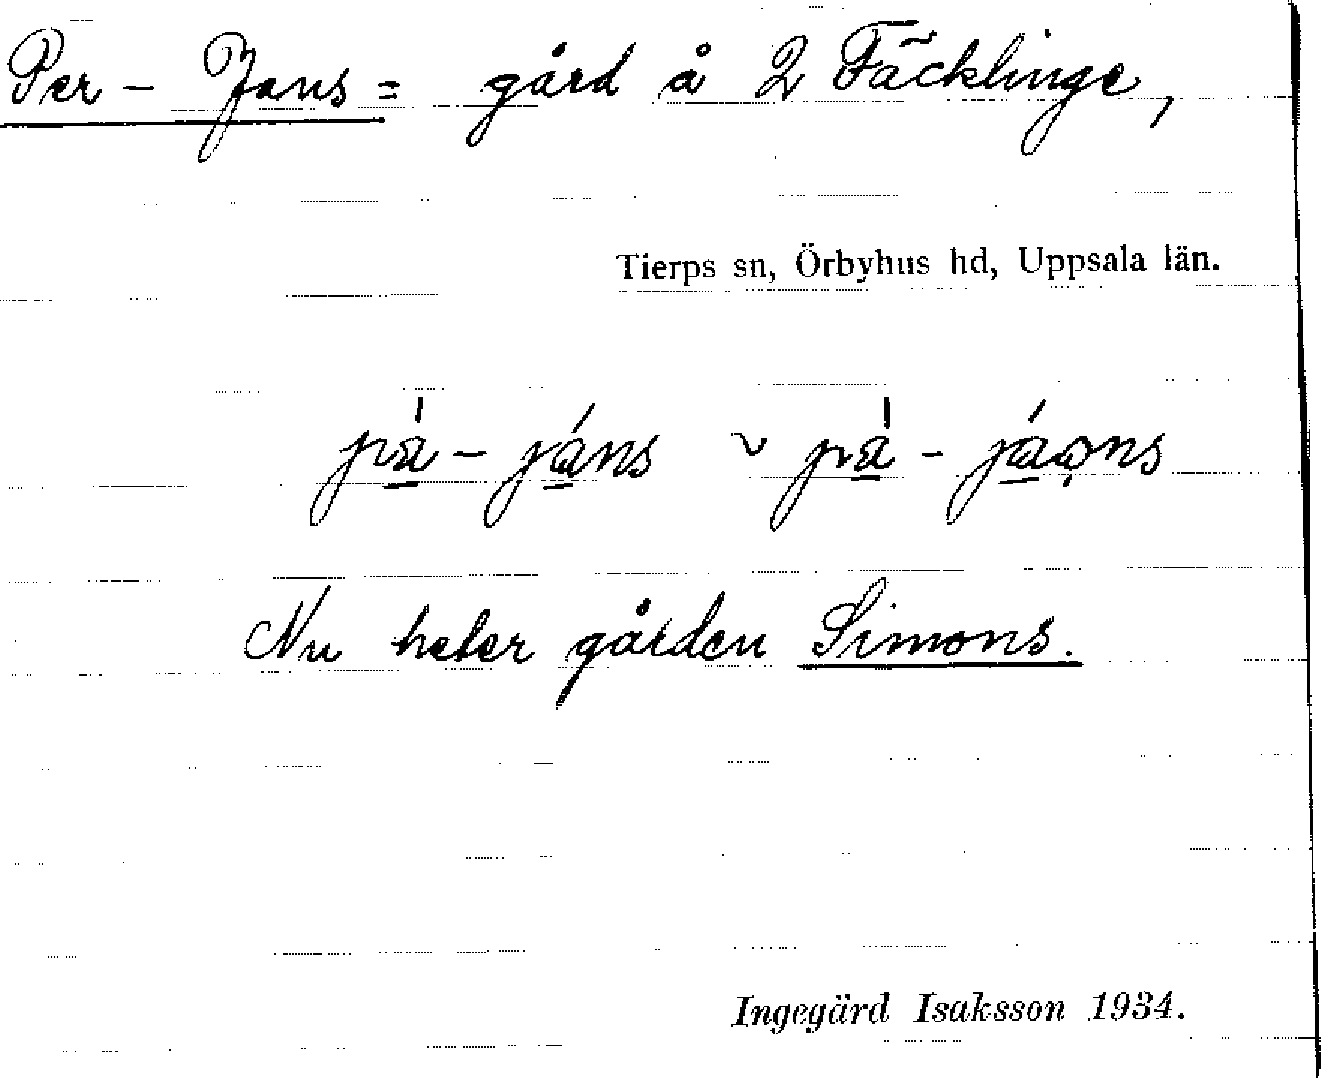 Per - Jans = gård å 2 Fäcklinge,
Tierps sn, Örbyhus hd, Uppsala län.
Nu heter gården Simons.
Ingegärd Isaksson 1934.